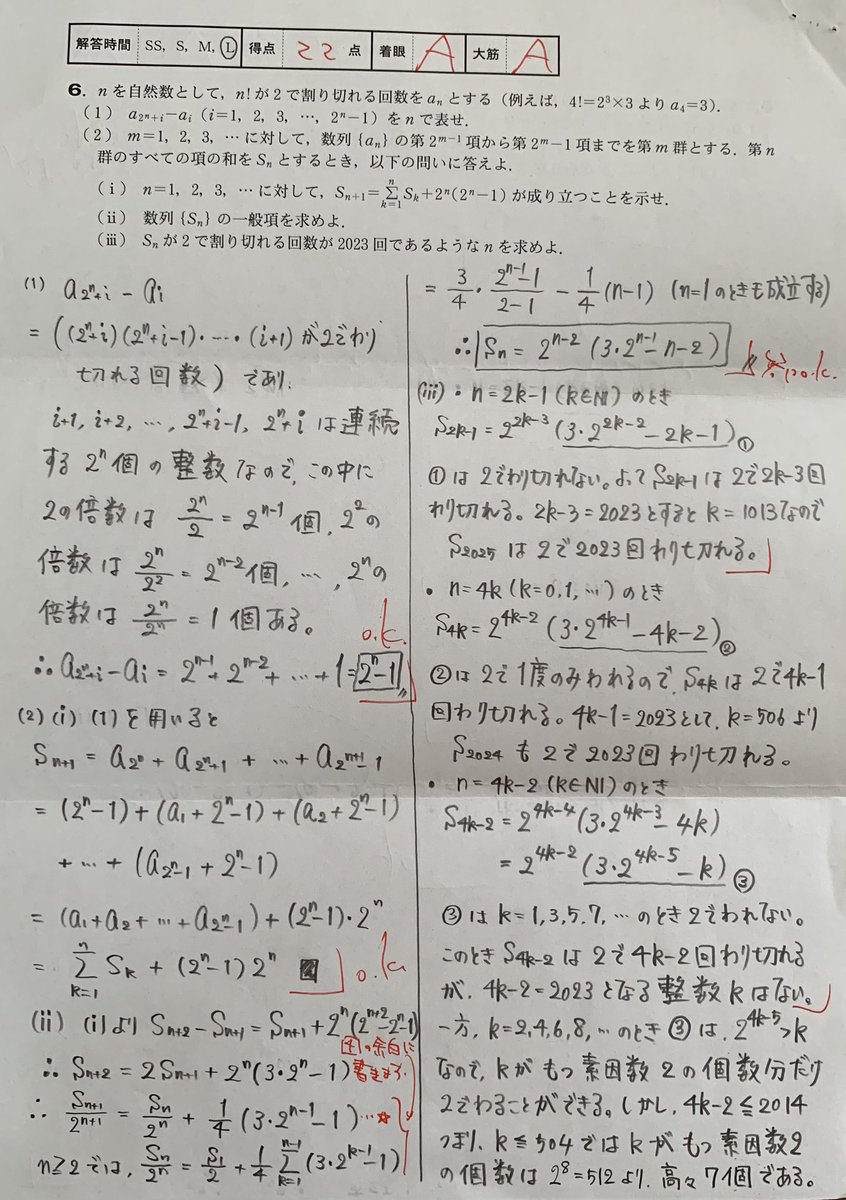 解答時間 SS, S, M, L 得点 22 点 着眼 A 大筋 A
6. nを自然数として, n!が2で割り切れる回数をaₙとする (例えば, 4!=2³×3 より a₄=3).
(1) a_{2ⁿ+i}−aᵢ (i=1, 2, 3, …, 2ⁿ−1) をnで表せ.
(2) m=1, 2, 3, … に対して, 数列{aₙ}の第2^{m−1}項から第2^m−1項までを第m群とする. 第n
群のすべての項の和をSₙとするとき, 以下の問いに答えよ.
(i) n=1, 2, 3, … に対して, Sₙ₊₁=∑_{k=1}^{n} Sₖ+2ⁿ(2ⁿ−1) が成り立つことを示せ.
(ii) 数列{Sₙ}の一般項を求めよ.
(iii) Sₙが2で割り切れる回数が2023回であるようなnを求めよ.
(1) a_{2ⁿ+i} − aᵢ
= ((2ⁿ+i)(2ⁿ+i−1)・…・(i+1) が2でわり
切れる回数) であり、
i+1, i+2, …, 2ⁿ+i−1, 2ⁿ+i は連続
する 2ⁿ個の整数なので、この中に
2の倍数は 2ⁿ/2 = 2^{n−1} 個, 2²の
倍数は 2ⁿ/2² = 2^{n−2}個, …, 2ⁿの
倍数は 2ⁿ/2ⁿ = 1 個ある。
o.k.
∴ a_{2ⁿ+i} − aᵢ = 2^{n−1} + 2^{n−2} + … + 1 = 2ⁿ−1
(2)(i) (1)を用いると
Sₙ₊₁ = a_{2ⁿ} + a_{2ⁿ+1} + … + a_{2^{n+1}−1}
= (2ⁿ−1) + (a₁+2ⁿ−1) + (a₂+2ⁿ−1)
+ … + (a_{2ⁿ−1} + 2ⁿ−1)
= (a₁+a₂+ … +a_{2ⁿ−1}) + (2ⁿ−1)・2ⁿ
= ∑_{k=1}^{n} Sₖ + (2ⁿ−1)2ⁿ
o.k.
(ii) (i)より Sₙ₊₂−Sₙ₊₁ = Sₙ₊₁ + 2ⁿ(2^{n+2}−2ⁿ−1)
の余白に
∴ Sₙ₊₂ = 2Sₙ₊₁ + 2ⁿ(3・2ⁿ−1)
書きます.
∴ Sₙ₊₁/2^{n+1} = Sₙ/2ⁿ + 1/4 (3・2^{n−1}−1) …☆
n≧2では, Sₙ/2ⁿ = S₁/2 + 1/4 ∑_{k=1}^{n−1} (3・2^{k−1}−1)
= 3/4・(2^{n−1}−1)/(2−1) − 1/4 (n−1) (n=1のときも成立する)
∴ Sₙ = 2^{n−2} (3・2^{n−1}−n−2)
o.k.
(iii) • n=2k−1 (k∈ℕ) のとき
S₂ₖ₋₁ = 2^{2k−3} (3・2^{2k−2}−2k−1) ①
①は2でわり切れない。よって S₂ₖ₋₁ は2で2k−3回
わり切れる。2k−3=2023とすると k=1013なので
S₂₀₂₅ は2で2023回わり切れる。
• n=4k (k=0,1, …) のとき
S₄ₖ = 2^{4k−2} (3・2^{4k−1}−4k−2) ②
②は2で1度のみわれるので, S₄ₖ は2で4k−1
回わり切れる。4k−1=2023として, k=506より
S₂₀₂₄ も2で2023回わり切れる。
• n=4k−2 (k∈ℕ) のとき
S₄ₖ₋₂ = 2^{4k−4} (3・2^{4k−3}−4k)
= 2^{4k−2} (3・2^{4k−5}−k) ③
③は k=1,3,5,7, … のとき2でわれない。
このとき S₄ₖ₋₂ は2で4k−2回わり切れる
が, 4k−2=2023となる整数kはない。
一方, k=2,4,6,8, … のとき ③は, 2^{4k−5}>k
なので, kがもつ素因数2の個数分だけ
2でわることができる。しかし, 4k−2≦2014
つまり, k≦504 ではkがもつ素因数2
の個数は 2⁸=512より, 高々7個である。